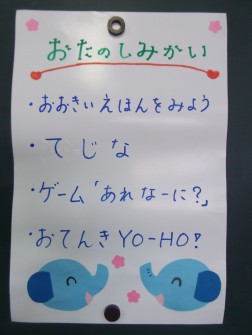 おたのしみかい
・おおきいえほんをみよう
・てじな
・ゲーム「あれなーに?」
・おてんきYO-HO!